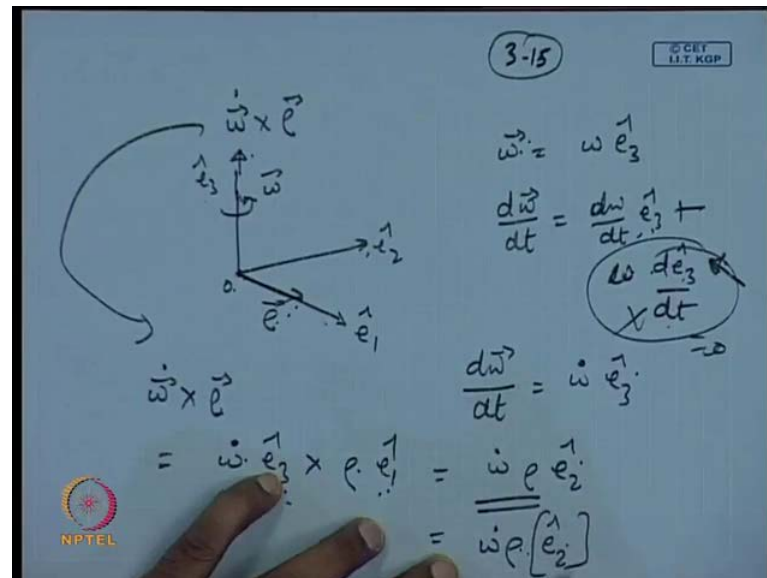 3-15
© CET
I.I.T. KGP
ω⃗̇ × ρ⃗
ê₃ ω⃗
ê₂
O.
ρ⃗
ê₁
ω⃗ = ω ê₃
dω⃗/dt = dω/dt ê₃ +
ω dê₃/dt
=0
dω⃗/dt = ω̇ ê₃
ω⃗̇ × ρ⃗
= ω̇ ê₃ × ρ ê₁ = ω̇ ρ ê₂
= ω̇ ρ [ê₂]
NPTEL